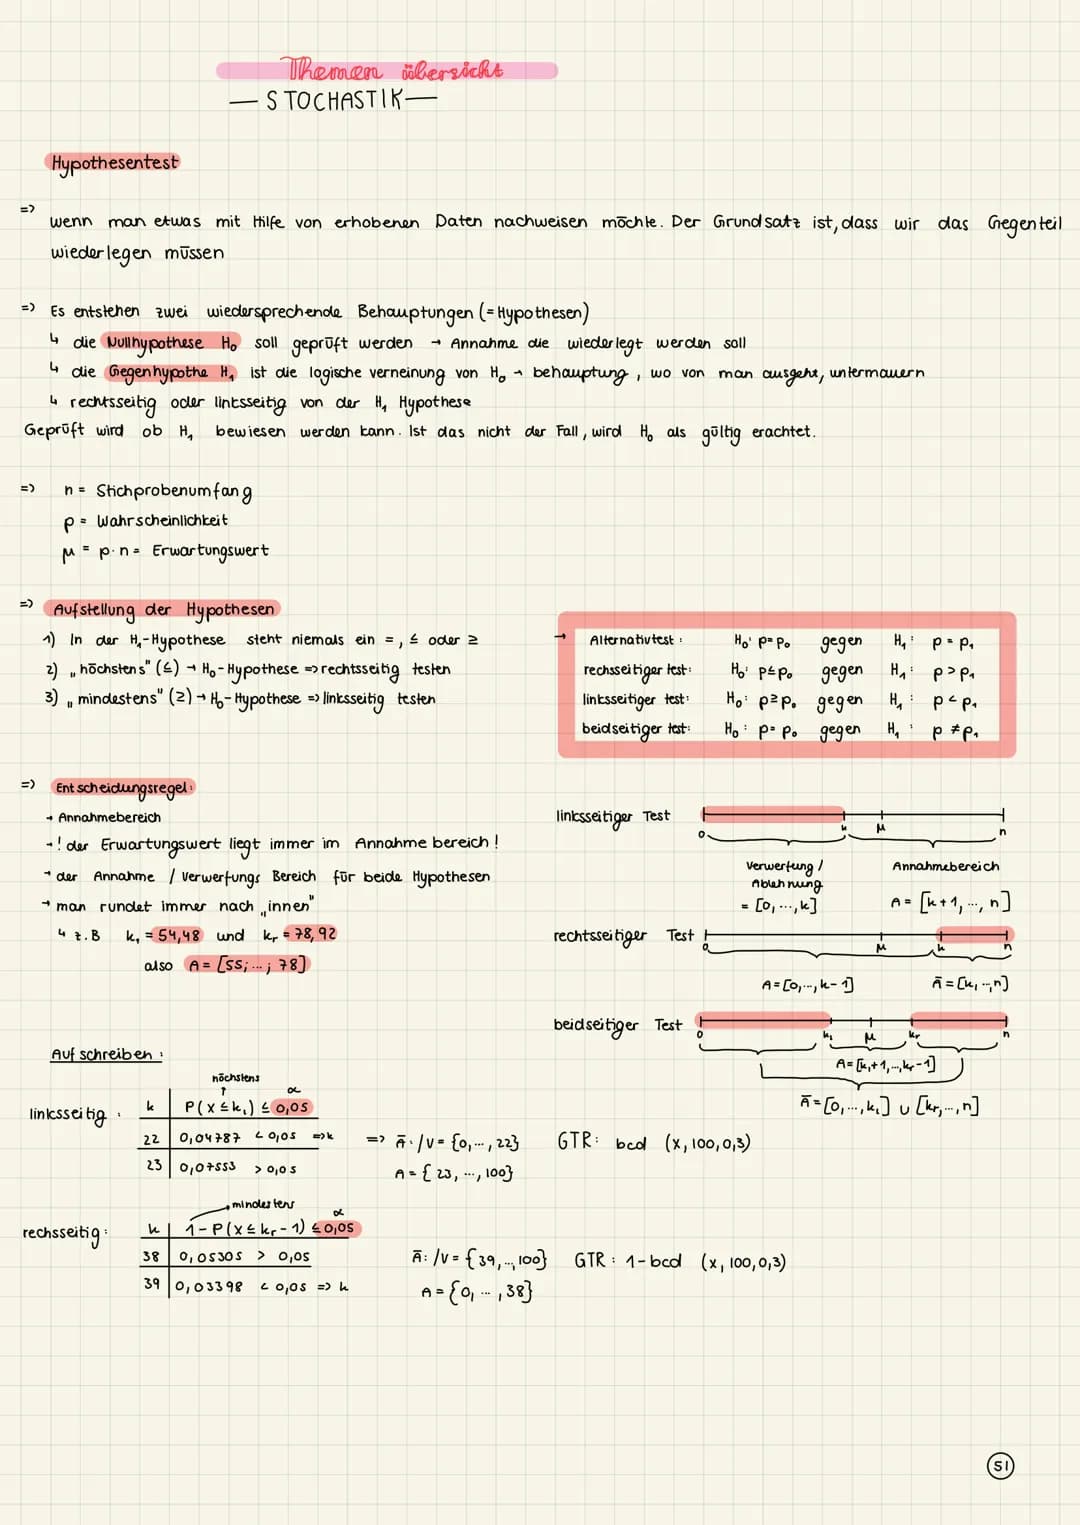 Themen übersicht
— STOCHASTIK —
Hypothesentest
=> wenn man etwas mit Hilfe von erhobenen Daten nachweisen möchte. Der Grundsatz ist, dass wir das Gegenteil
wiederlegen müssen
=> Es entstehen zwei wiedersprechende Behauptungen (= Hypothesen)
↳ die Nullhypothese H₀ soll geprüft werden → Annahme die wiederlegt werden soll
↳ die Gegenhypothe H₁ ist die logische verneinung von H₀ → behauptung, wo von man ausgeht, untermauern
↳ rechtsseitig oder linksseitig von der H₁ Hypothese
Geprüft wird ob H₁ bewiesen werden kann. Ist das nicht der Fall, wird H₀ als gültig erachtet.
=> n = Stichprobenumfang
p = Wahrscheinlichkeit
μ = p·n = Erwartungswert
=> Aufstellung der Hypothesen
1) In der H₁-Hypothese steht niemals ein =, ≤ oder ≥
2) „höchstens" (≤) → H₀-Hypothese => rechtsseitig testen
3) „mindestens" (≥) → H₀-Hypothese => linksseitig testen
→ Alternativtest: H₀: p=p₀ gegen H₁: p=p₁
rechsseitiger test: H₀: p≤p₀ gegen H₁: p>p₁
linksseitiger test: H₀: p≥p₀ gegen H₁: p<p₁
beidseitiger test: H₀: p=p₀ gegen H₁: p≠p₁
=> Entscheidungsregel:
→ Annahmebereich
→ ! der Erwartungswert liegt immer im Annahme bereich !
→ der Annahme / Verwerfungs Bereich für beide Hypothesen
→ man rundet immer nach „innen"
↳ z.B k₁ = 54,48 und kᵣ = 78,92
also A = [55; ...; 78]
linksseitiger Test
0 k μ n
Verwerfung / Annahmebereich
Ablehnung
= [0, ..., k] A = [k+1, ..., n]
rechtsseitiger Test
0 μ k n
A = [0, ..., k-1] Ā = [k, ..., n]
beidseitiger Test
0 k₁ μ kᵣ n
A = [k₁+1, ..., kᵣ-1]
Ā = [0, ..., k₁] ∪ [kᵣ, ..., n]
Aufschreiben:
höchstens
↑ α
linksseitig: k P(X ≤ k₁) ≤ 0,05
22 0,04787 < 0,05 => k => Ā: /V = {0, ..., 22} GTR: bcd (X, 100, 0,3)
23 0,07553 > 0,05 A = {23, ..., 100}
mindestens
α
rechsseitig: k 1-P(X ≤ kᵣ-1) ≤ 0,05
38 0,05305 > 0,05 Ā: /V = {39, ..., 100} GTR: 1-bcd (x, 100, 0,3)
39 0,03398 < 0,05 => k A = {0, ..., 38}
51